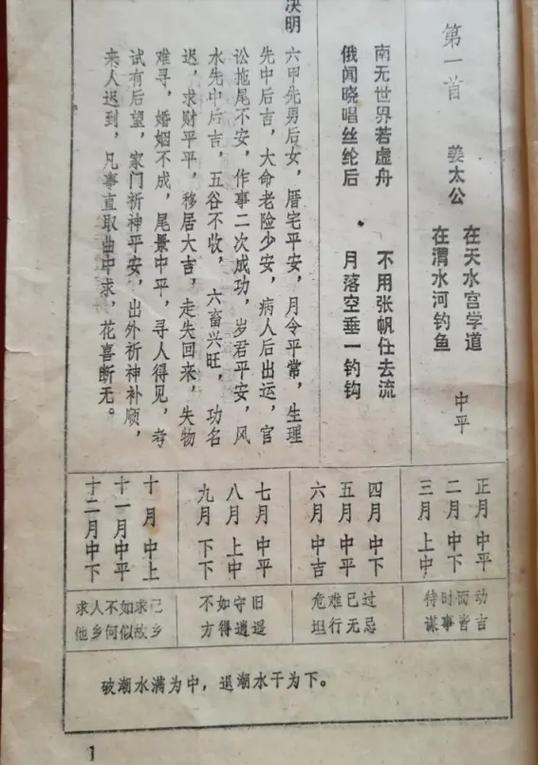 第一首
姜太公
在天水宫学道
在渭水河钓鱼
中平
南无世界若虚舟 不用张帆仕去流
俄闻晓唱丝纶后 月落空垂一钓钩
决明
六甲先男后女，厝宅平安，月令平常，生理
先中后吉，大命老险少安，病人后出运，官
讼拖尾不安，作事二次成功，岁君平安，风
水先中后吉，五谷不收，六畜兴旺，功名
迟，求财平平，移居大吉，走失回来，失物
难寻，婚姻不成，尾景中平，寻人得见，考
试有后望，家门祈神平安，出外祈神补顺，
来人迟到，凡事直取曲中求，花喜断无。
正月 中平
二月 中下
三月 上中
四月 中下
五月 中平
六月 中吉
七月 中平
八月 上中
九月 下下
十月 中上
十一月 中平
十二月 中下
待时而动
谋事皆吉
危难已过
坦行无忌
不如守旧
方得逍遥
求人不如求己
他乡何似故乡
破潮水满为中，退潮水干为下。
1